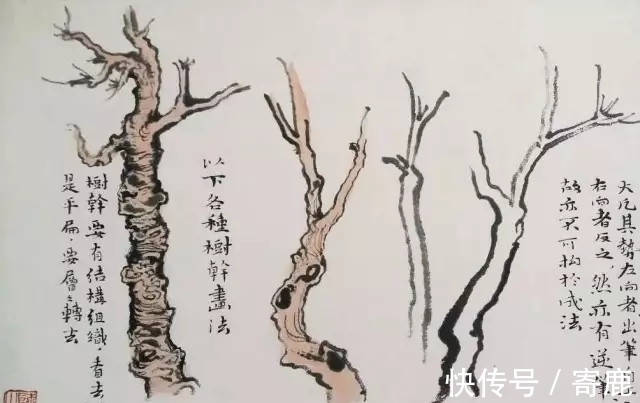 大凡其勢左向者出筆
右向者反之，然亦有逆筆
故亦不可拘於成法
以下各種樹幹畫法
樹幹要有結構組織，看去
是平扁，要層々轉去
快传号 / 寄鹿